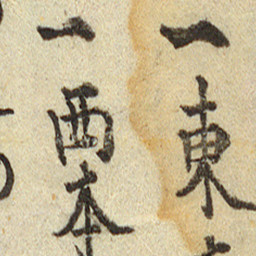 一東
一西本